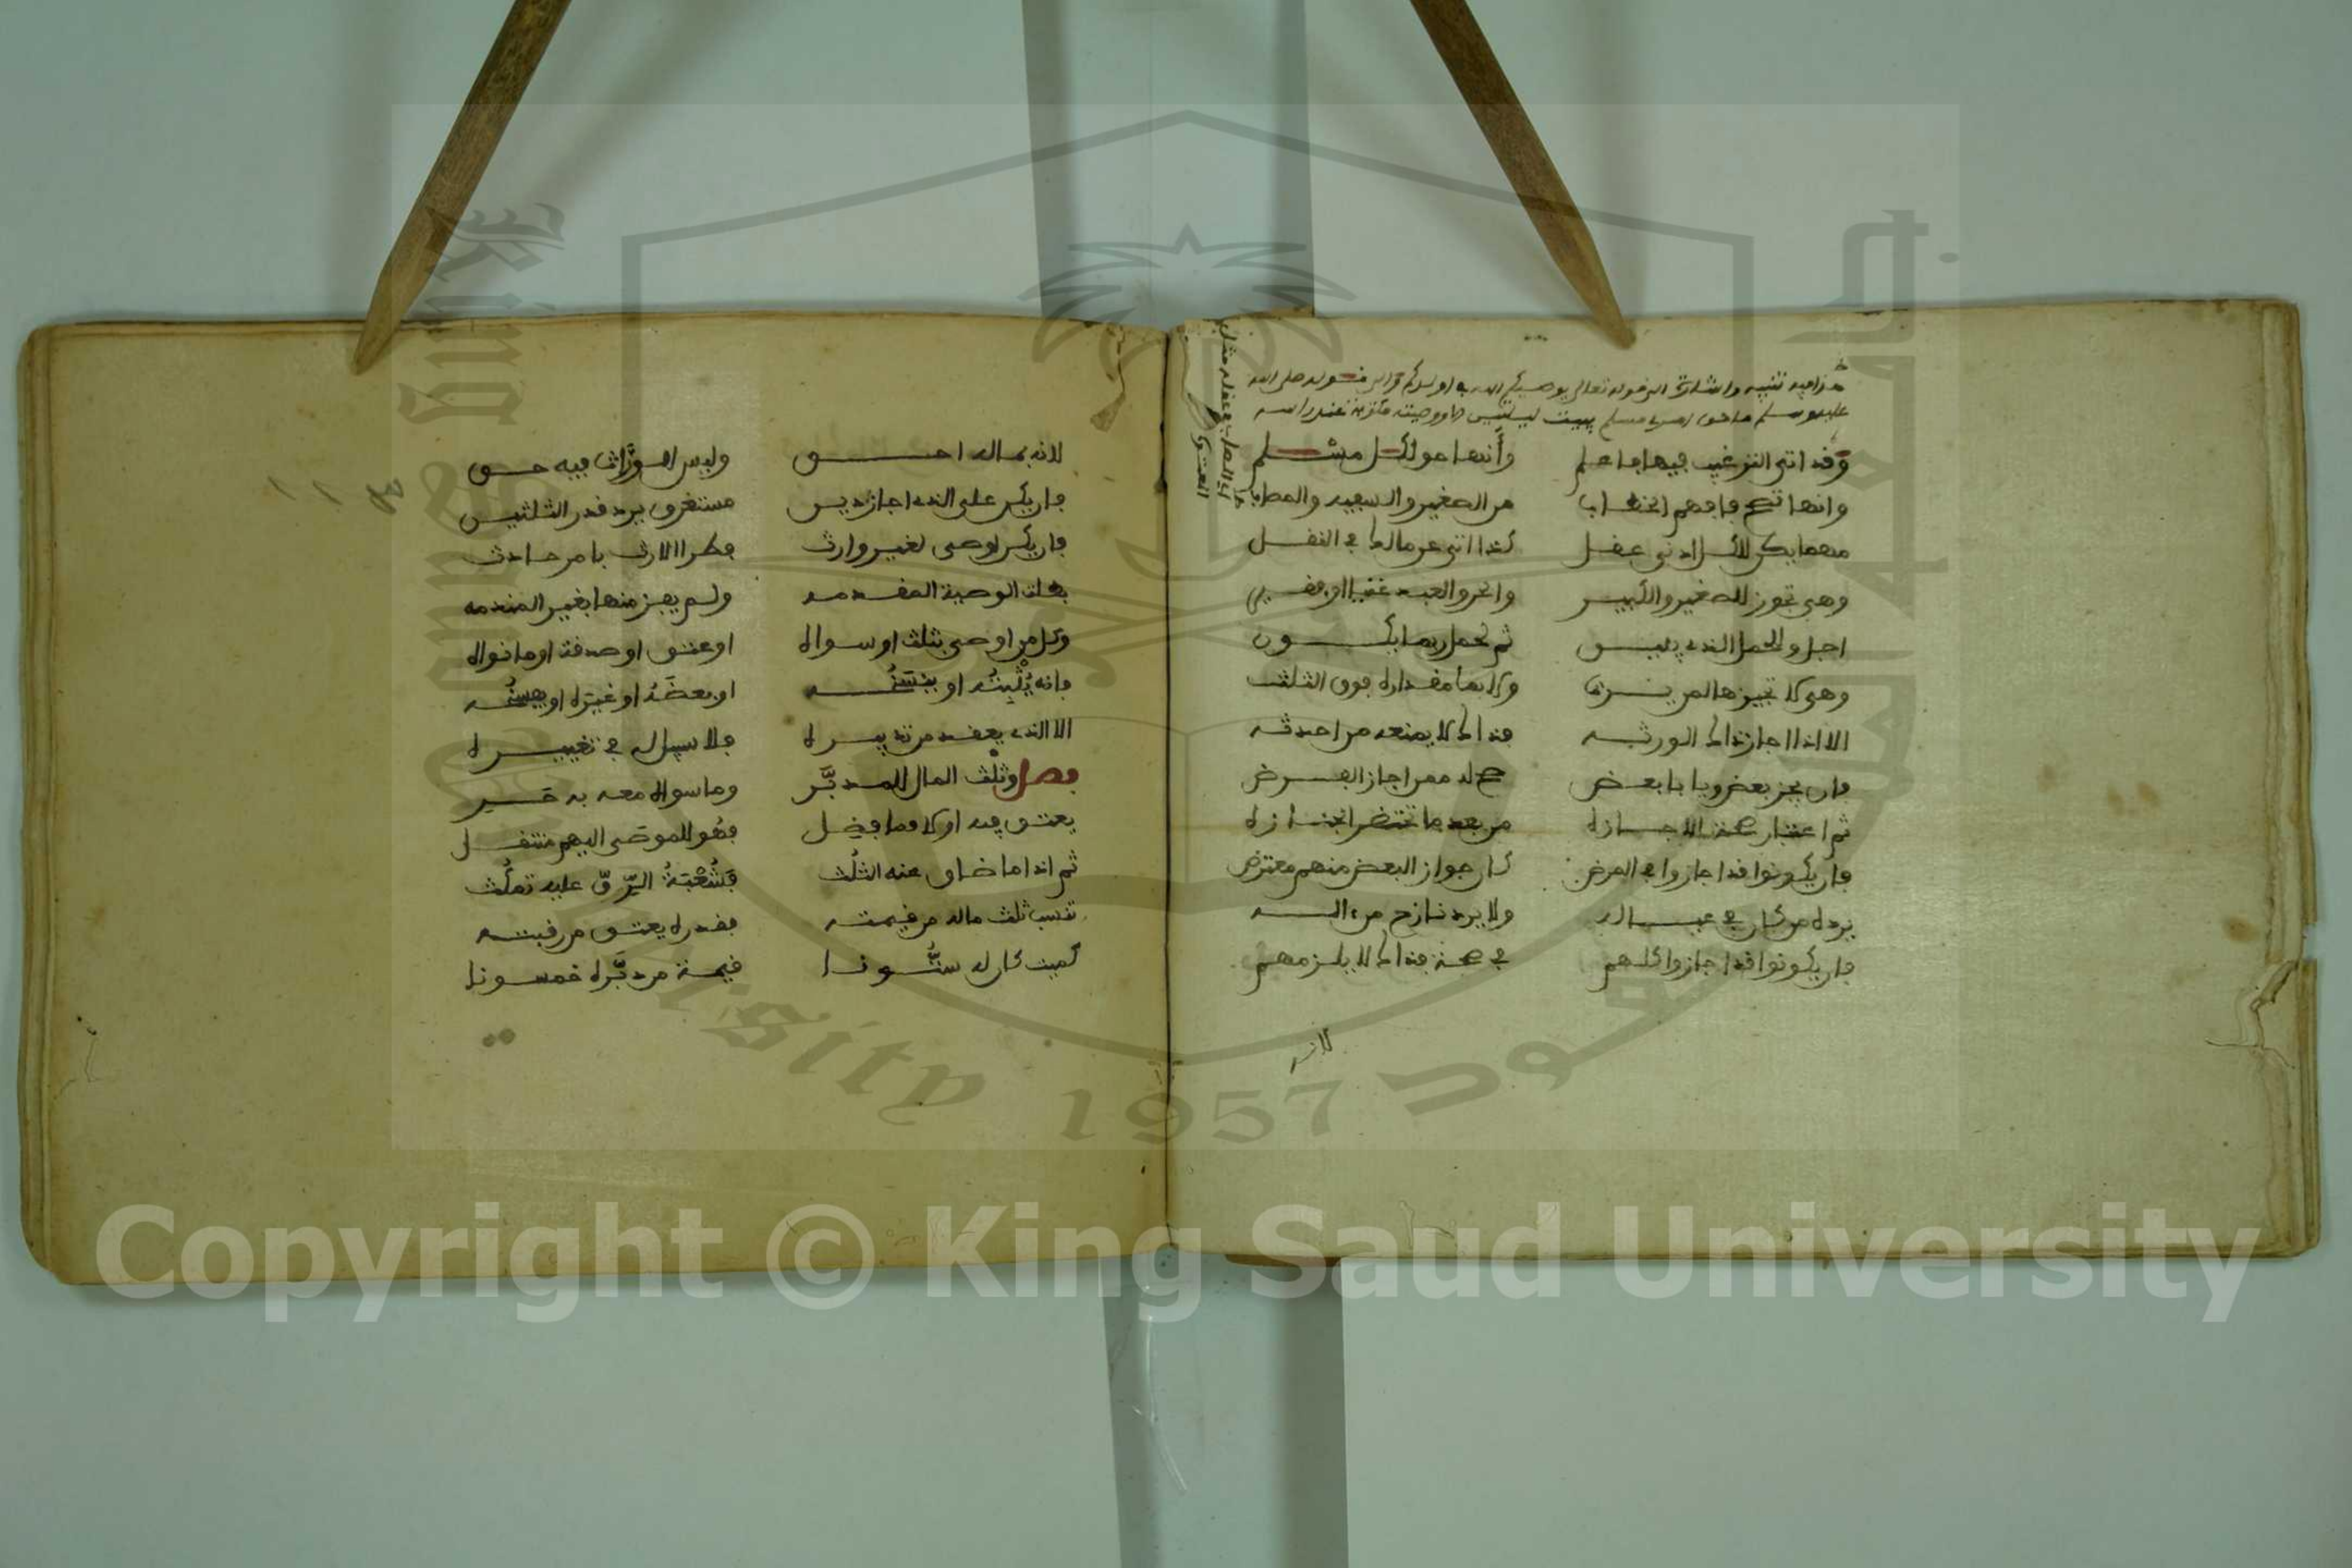 هذا فيه تنبيه واشارة الى قوله تعالى يوصيكم الله في اولدكم والى قوله صلى الله
عليه وسلم ما حق امرئ مسلم يبيت ليلتين الا ووصيته مكتوبة عند راسه
وقد اتى الترغيب فيها فاعلم وأنها حق لكل مسلم
وانها تصح فافهم الخطاب من الصغير والسفيه والمصاب
مهما يكن للكل ادنى عقل كذا اتى عن مالك في النقل
وهي تجوز للصغير والكبير والحر والعبد غنيا او فقير
اجل وللحمل الذي يبين ثم لحمل ربما يكون
وهي لا تجيزها لمن يرث ولا بما مقداره فوق الثلث
الا اذا اجاز ذاك الورثه فذاك لا يمنعه من احدثه
فان يجز بعض ويابا بعض صح له ممن اجاز الفرض
ثم اعتبار صحة الاجازه من بعد ما تحتضر الجنازه
فان يكونوا قد اجازوا في المرض كان جواز البعض منهم معترض
يرده من كان في عياله ولا يرد نازح من اله
فان يكونوا قد اجازوا كلهم في صحة فذاك لا يلزمهم
لانه
لانه بماله احق وليس للوراث فيه حق
فان يكن على الذي اجاز دين مستغرق يرد قدر الثلثين
فان يكن اوصى لغير وارث فطرا الارث بامر حادث
بطلت الوصية المقدمه ولم يجز منها بغير المندمه
وكل من اوصى بثلث او سواه او عتق او صدقة او ما نواه
فانه يثبته او ينسخه او بعضه او غيره او يفسخه
الا الذي يعقد من تدبيره فلا سبيل له في تغييره
فصل وثلث المال للمدبر وما سواه معه به حر
يعتق فيه اولا وما فضل فهو للموصى اليهم منتقل
ثم اذا ما ضاق عنه الثلث فشعبة الرق عليه تمكث
تنسب ثلث ماله من قيمته فقدره يعتق من رقبته
كميت كان له ستونا قيمة من دبره خمسونا